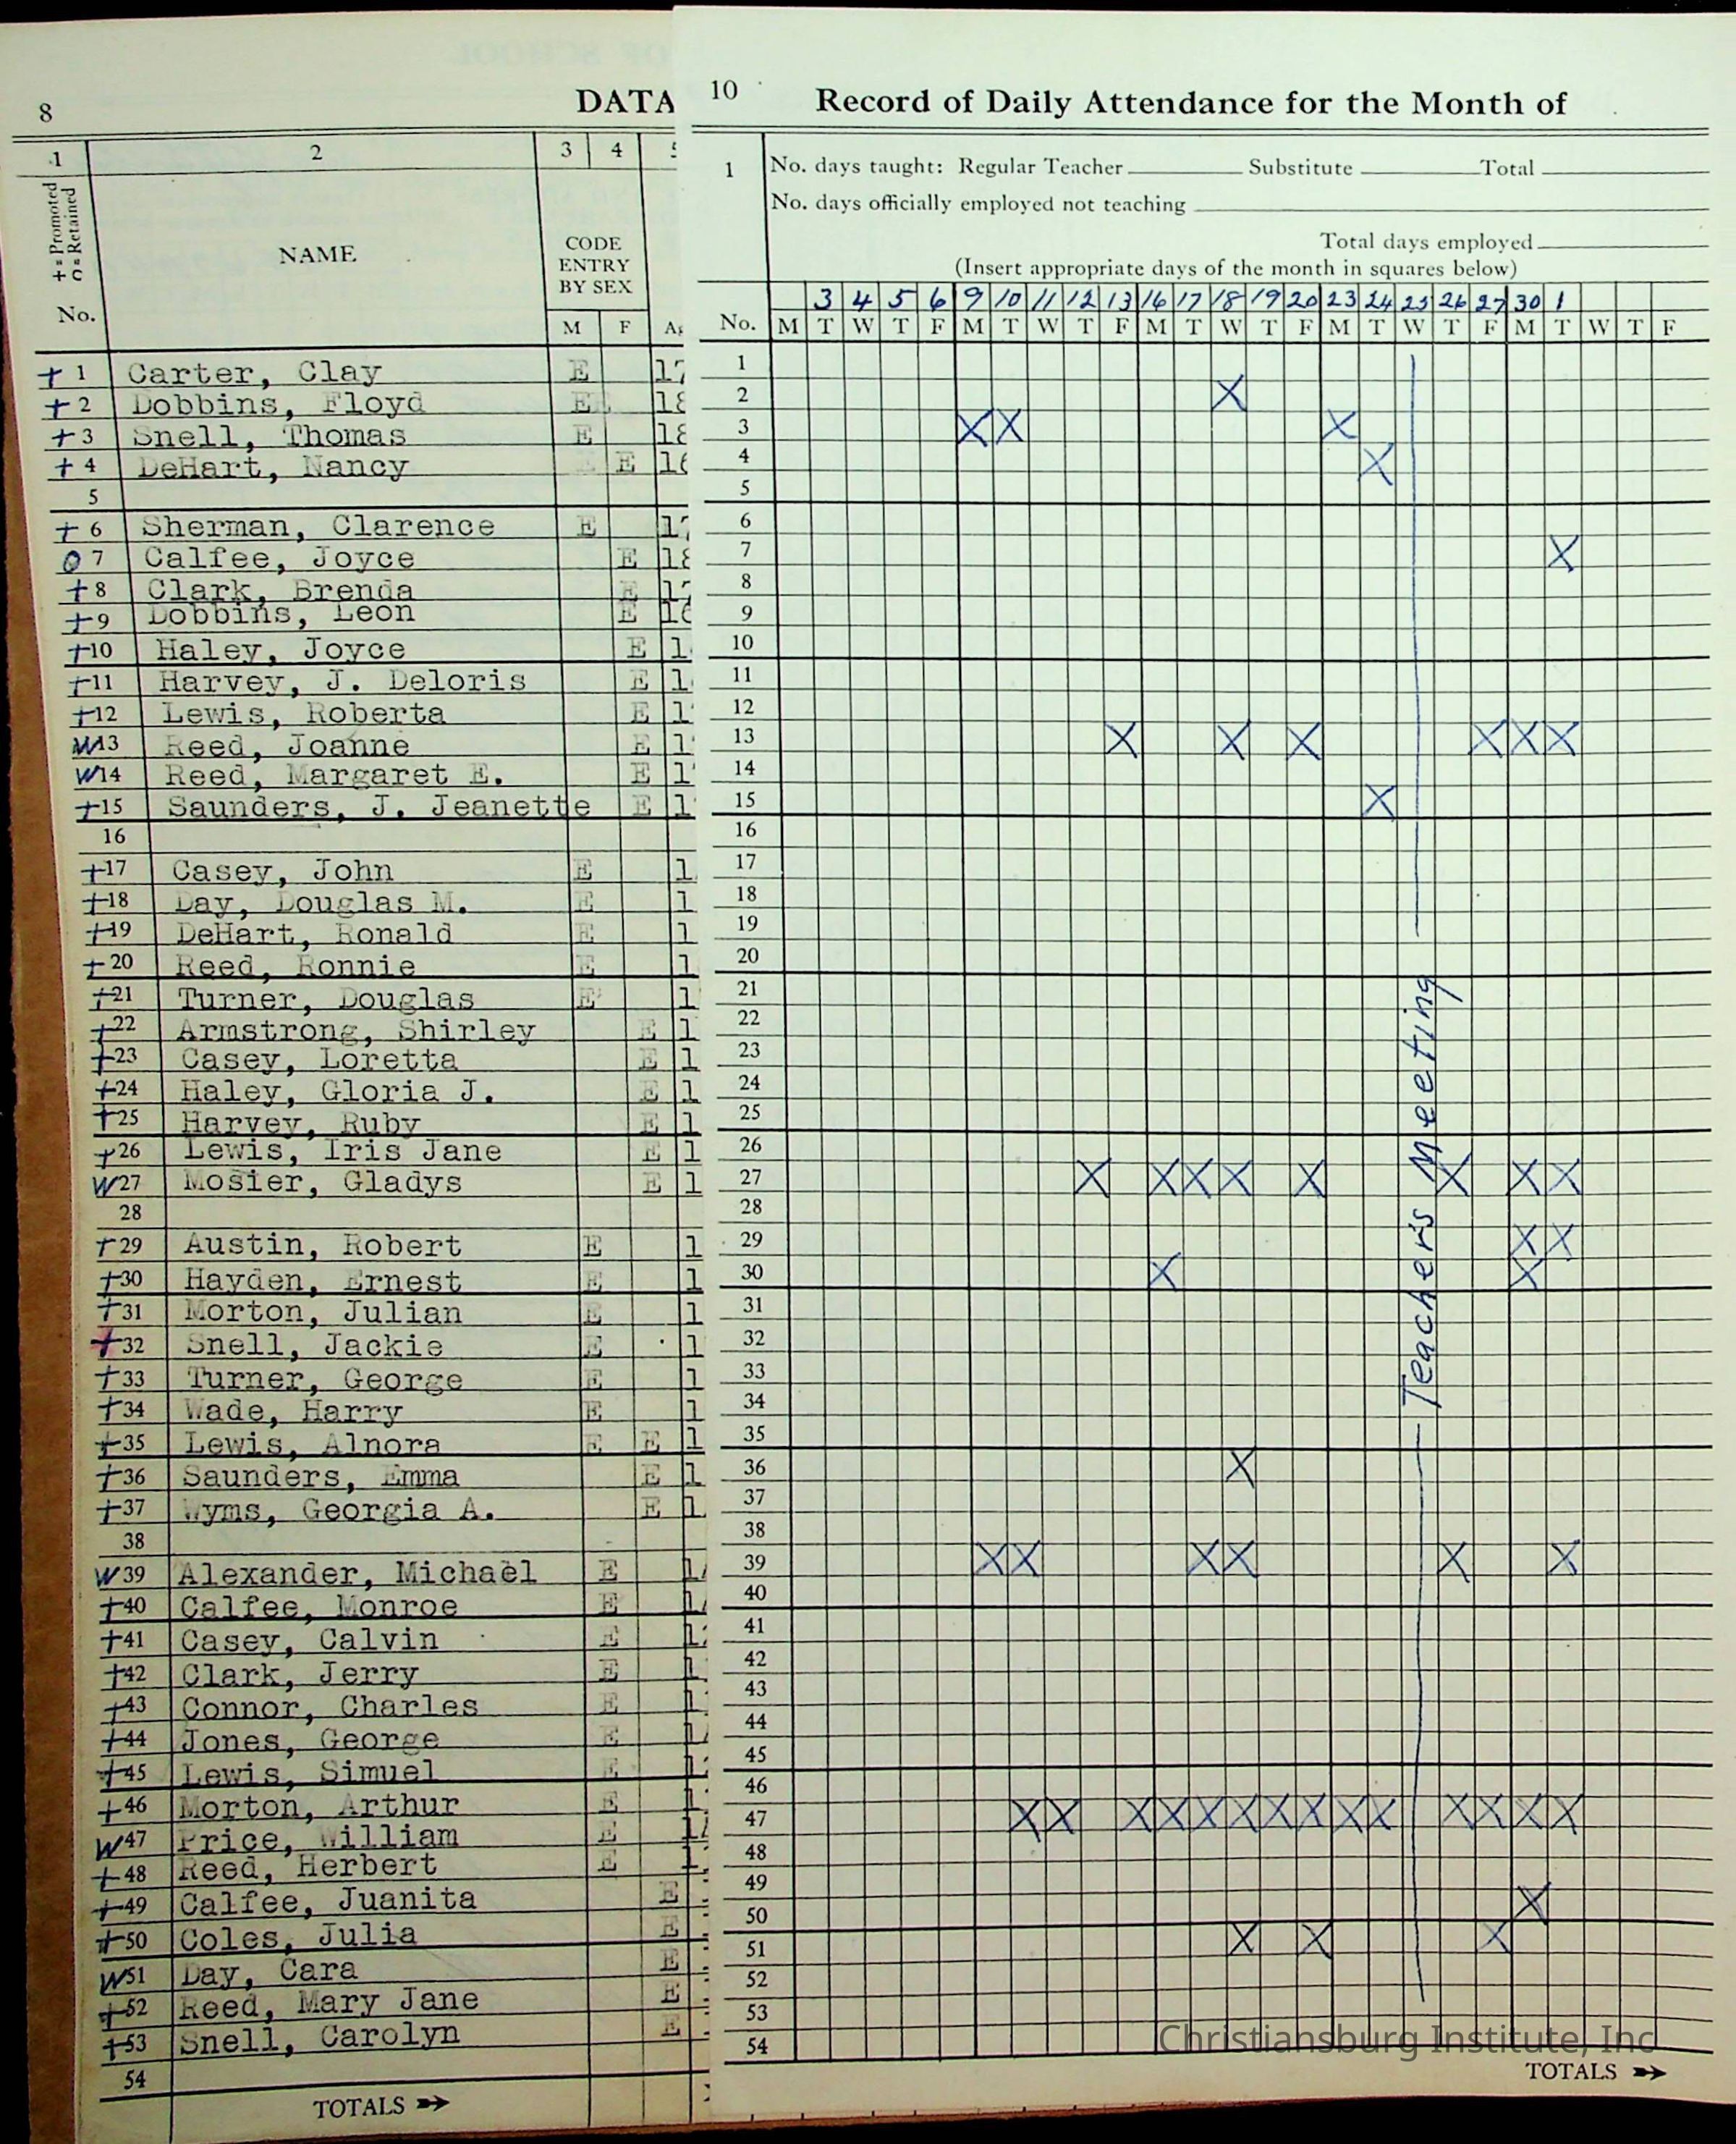 8
DATA
1 2 3 4 5
+ = Promoted
o = Retained
No.
NAME
CODE
ENTRY
BY SEX
M F Ag
+ 1 Carter, Clay E 17
+ 2 Dobbins, Floyd E 18
+ 3 Snell, Thomas E 18
+ 4 DeHart, Nancy E 16
5
+ 6 Sherman, Clarence E 17
O 7 Calfee, Joyce E 18
+ 8 Clark, Brenda E 17
+ 9 Dobbins, Leon E 16
+ 10 Haley, Joyce E 1
+ 11 Harvey, J. Deloris E 1
+ 12 Lewis, Roberta E 1
W 13 Reed, Joanne E 1
W 14 Reed, Margaret E. E 1
+ 15 Saunders, J. Jeanette E 1
16
+ 17 Casey, John E 1
+ 18 Day, Douglas M. E 1
+ 19 DeHart, Ronald E 1
+ 20 Reed, Ronnie E 1
+ 21 Turner, Douglas E 1
+ 22 Armstrong, Shirley E 1
+ 23 Casey, Loretta E 1
+ 24 Haley, Gloria J. E 1
+ 25 Harvey, Ruby E 1
+ 26 Lewis, Iris Jane E 1
W 27 Mosier, Gladys E 1
28
+ 29 Austin, Robert E 1
+ 30 Hayden, Ernest E 1
+ 31 Morton, Julian E 1
+ 32 Snell, Jackie E 1
+ 33 Turner, George E 1
+ 34 Wade, Harry E 1
+ 35 Lewis, Alnora E E 1
+ 36 Saunders, Emma E 1
+ 37 Wyms, Georgia A. E 1
38
W 39 Alexander, Michael E 1
+ 40 Calfee, Monroe E 1
+ 41 Casey, Calvin E 1
+ 42 Clark, Jerry E 1
+ 43 Connor, Charles E 1
+ 44 Jones, George E 1
+ 45 Lewis, Simuel E 1
+ 46 Morton, Arthur E 1
W 47 Price, William E 1
+ 48 Reed, Herbert E 1
+ 49 Calfee, Juanita E
+ 50 Coles, Julia E
W 51 Day, Cara E
+ 52 Reed, Mary Jane E
+ 53 Snell, Carolyn E
54
TOTALS
10
Record of Daily Attendance for the Month of
1 No. days taught: Regular Teacher Substitute Total
No. days officially employed not teaching
Total days employed
(Insert appropriate days of the month in squares below)
3 4 5 6 9 10 11 12 13 16 17 18 19 20 23 24 25 26 27 30 1
No. M T W T F M T W T F M T W T F M T W T F M T W T F
1
2 X
3 X X X
4 X
5
6
7 X
8
9
10
11
12
13 X X X X X X
14
15 X
16
17
18
19
20
21
22
23
24
25
26
27 X X X X X X X X
28
29 X X
30 X X
31
32
33
34
35
36 X
37
38
39 X X X X X X
40
41
42
43
44
45
46
47 X X X X X X X X X X X X X X
48
49
50 X
51 X X X
52
53
54
Teachers Meeting
TOTALS
Christiansburg Institute, Inc